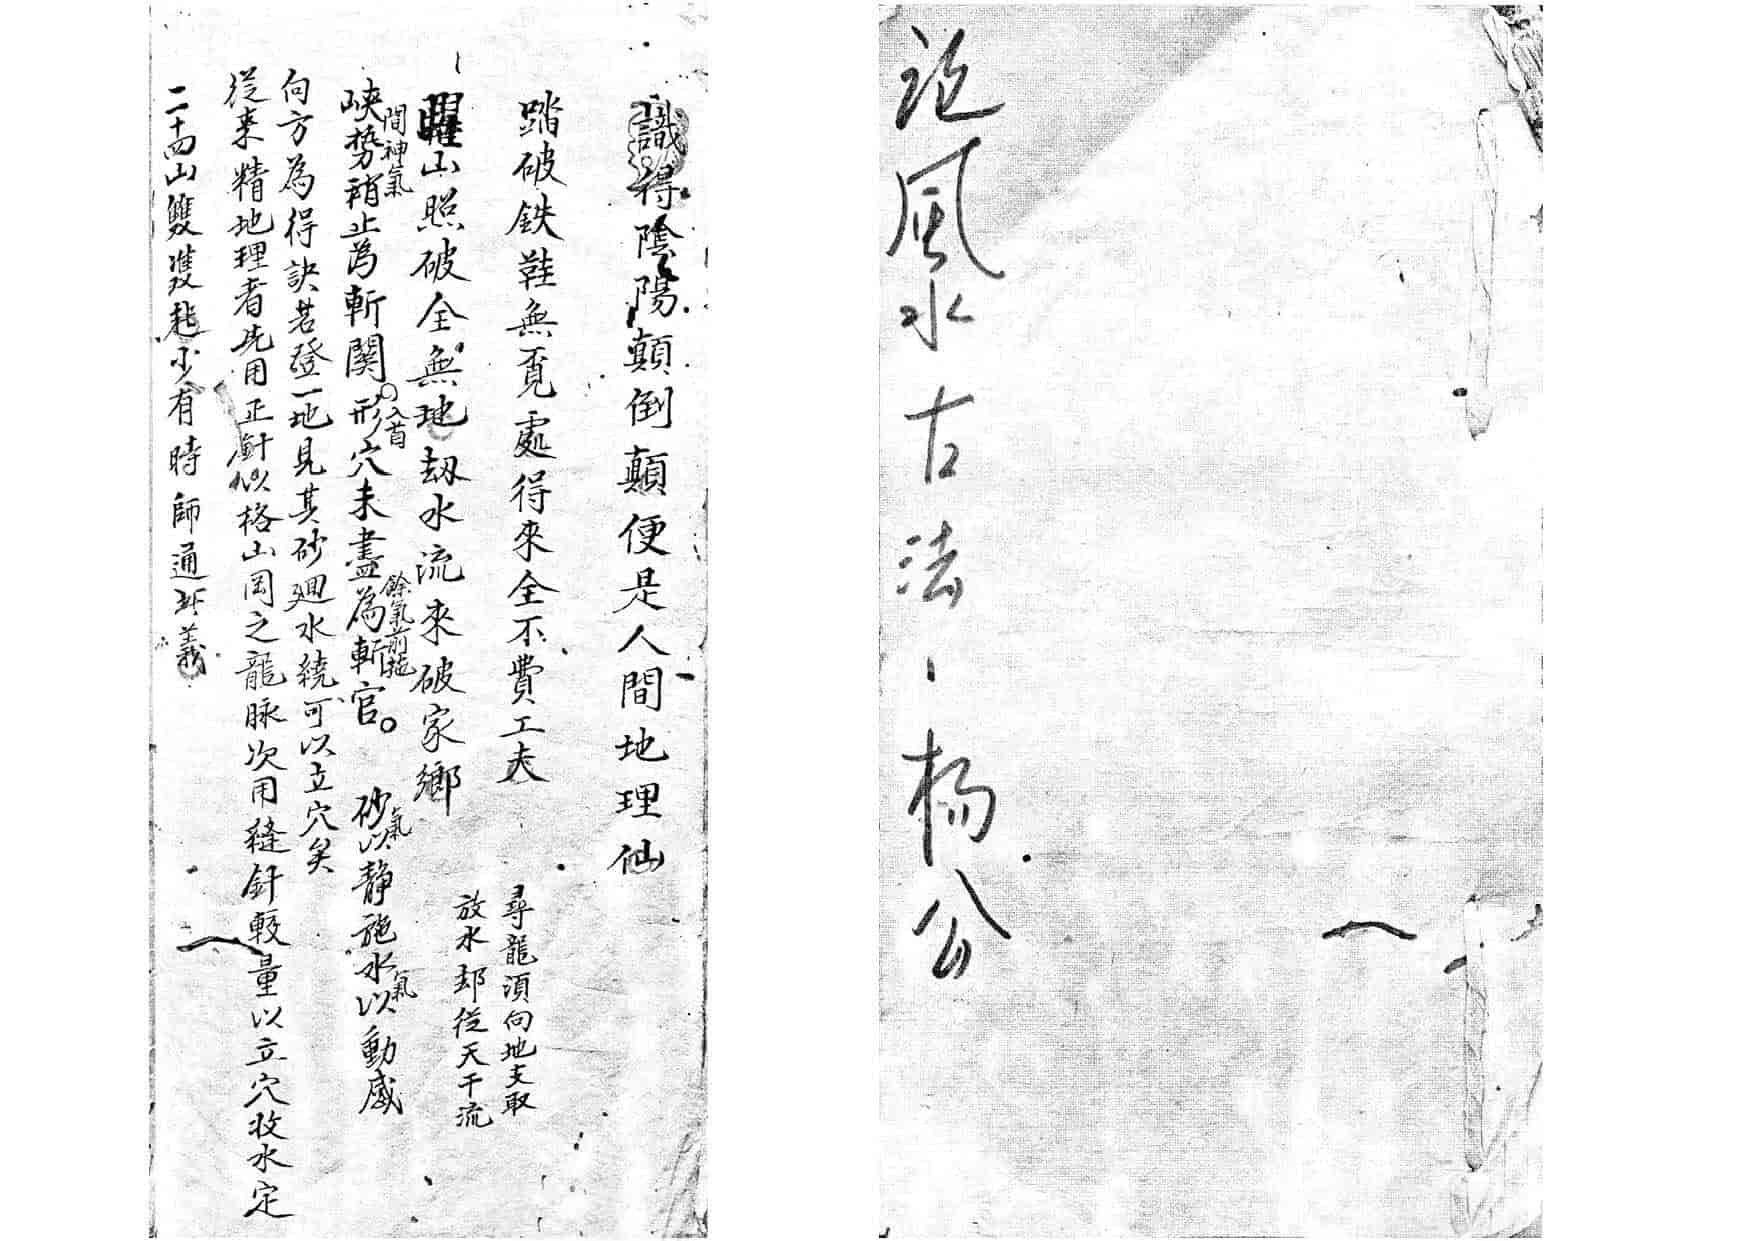 論風水古法、楊公
識得陰陽顛倒顛便是人間地理仙
踏破鉄鞋無覓處得來全不費工夫
尋龍須向地支取
放水却從天干流
曜山照破全無地劫水流來破家鄉
峽間神氣勢稍止為斬關。形入首穴未盡為斬餘氣前拖官。 砂氣以静施水氣以動感
向方為得訣若登一地見其砂廻水繞可以立穴矣
從来精地理者先用正針似格山岡之龍脉次用縫針較量以立穴收水定
二十四山雙雙起少有時師通此義